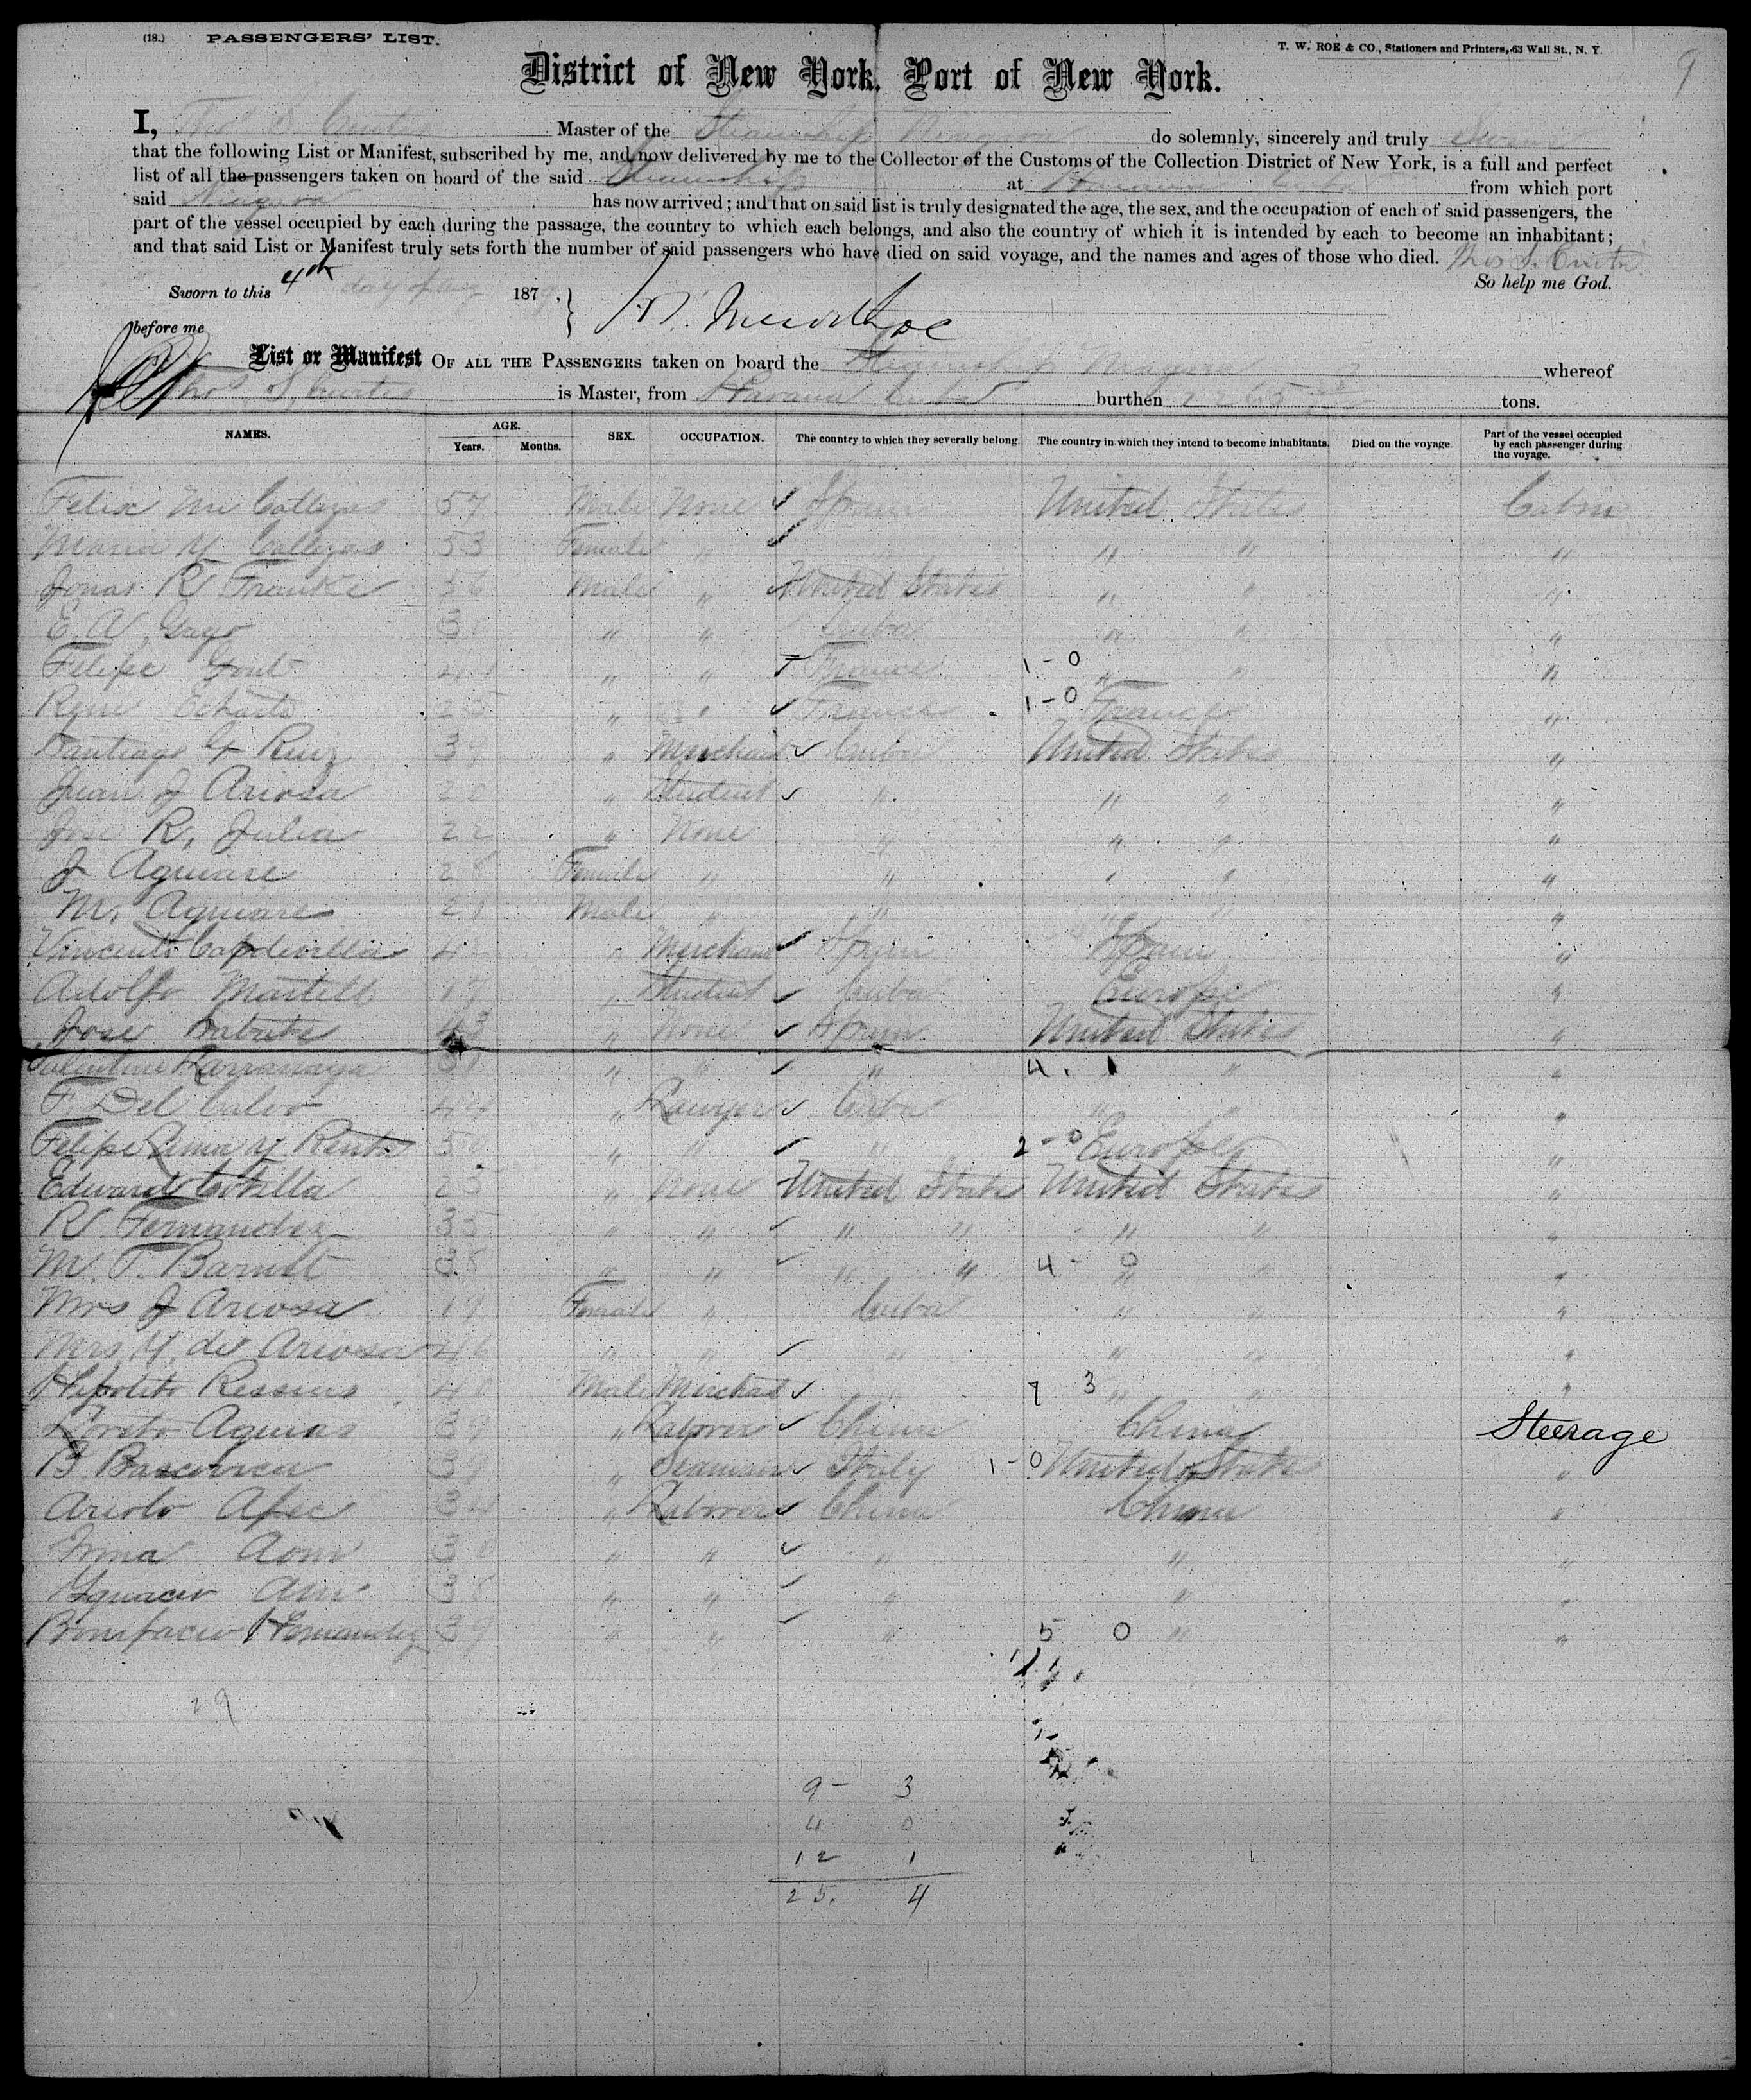 (18.) PASSENGERS' LIST.
T. W. ROE & CO., Stationers and Printers, 63 Wall St., N. Y.
9
District of New York, Port of New York.
I, Thos S. Curtis Master of the Steamship Niagara do solemnly, sincerely and truly Swear
that the following List or Manifest, subscribed by me, and now delivered by me to the Collector of the Customs of the Collection District of New York, is a full and perfect
list of all the passengers taken on board of the said Steamship at Havana Cuba from which port
said Niagara has now arrived; and that on said list is truly designated the age, the sex, and the occupation of each of said passengers, the
part of the vessel occupied by each during the passage, the country to which each belongs, and also the country of which it is intended by each to become an inhabitant;
and that said List or Manifest truly sets forth the number of said passengers who have died on said voyage, and the names and ages of those who died. Thos S. Curtis
So help me God.
Sworn to this 4th day of Aug 1879
before me
List or Manifest OF ALL THE PASSENGERS taken on board the Steamship Niagara whereof
Thos S. Curtis is Master, from Havana Cuba burthen 2265 tons.
NAMES. AGE. Years. Months. SEX. OCCUPATION. The country to which they severally belong. The country in which they intend to become inhabitants. Died on the voyage. Part of the vessel occupied by each passenger during the voyage.
Felix M Callejas 57 Male None ✓ Spain United States Cabin
Maria Y Callejas 53 Female " ✓ " " " "
Jonas R Franke 56 Male " ✓ United States " " "
E. V. Gago " " Cuba " " "
Felipe Gout " " France 1-0 " " "
Rene 25 " " ✓ France 1-0 France "
Santiago G Ruiz 39 " Merchant ✓ Cuba United States "
Juan J Ariosa 20 " Student ✓ " " " "
Jose R. Julia 22 " None " " " "
J Aguiare 28 Female " " " " "
M. Aguiare 21 Male " " " " "
Vincente Capdevilla 42 " Merchant ✓ Spain Spain "
Adolfo Martell 17 " Student ✓ Cuba Europe "
Jose Sabate 43 " None ✓ Spain United States "
Valentine " " ✓ " 4. 1 " "
F. Del Calvo 44 " Lawyer ✓ Cuba " " "
Felipe Lima y Renta " " ✓ " 2-0 Europe "
Eduardo Covilla 23 " None United States United States "
R Fernandez 35 " " ✓ " " " " "
M. T. Barnet 38 " " ✓ " " 4 - 0 " " "
Mrs J Ariosa 19 Female " Cuba " " "
Mrs Y. de Ariosa 46 " " ✓ " " " "
Hipolito 40 Male Merchant ✓ 7 3 " " "
Loreto Aguias 39 " Laborer ✓ China China Steerage
B 39 " Seaman ✓ Italy 1-0 United States "
Afec 34 " Laborer ✓ China China "
Aom 30 " " ✓ " " "
Ygnacio 38 " " ✓ " " "
Bonifacio Hernandez 39 " " ✓ " 5 0 " "
29
9 - 3
4 0
12 1
25. 4